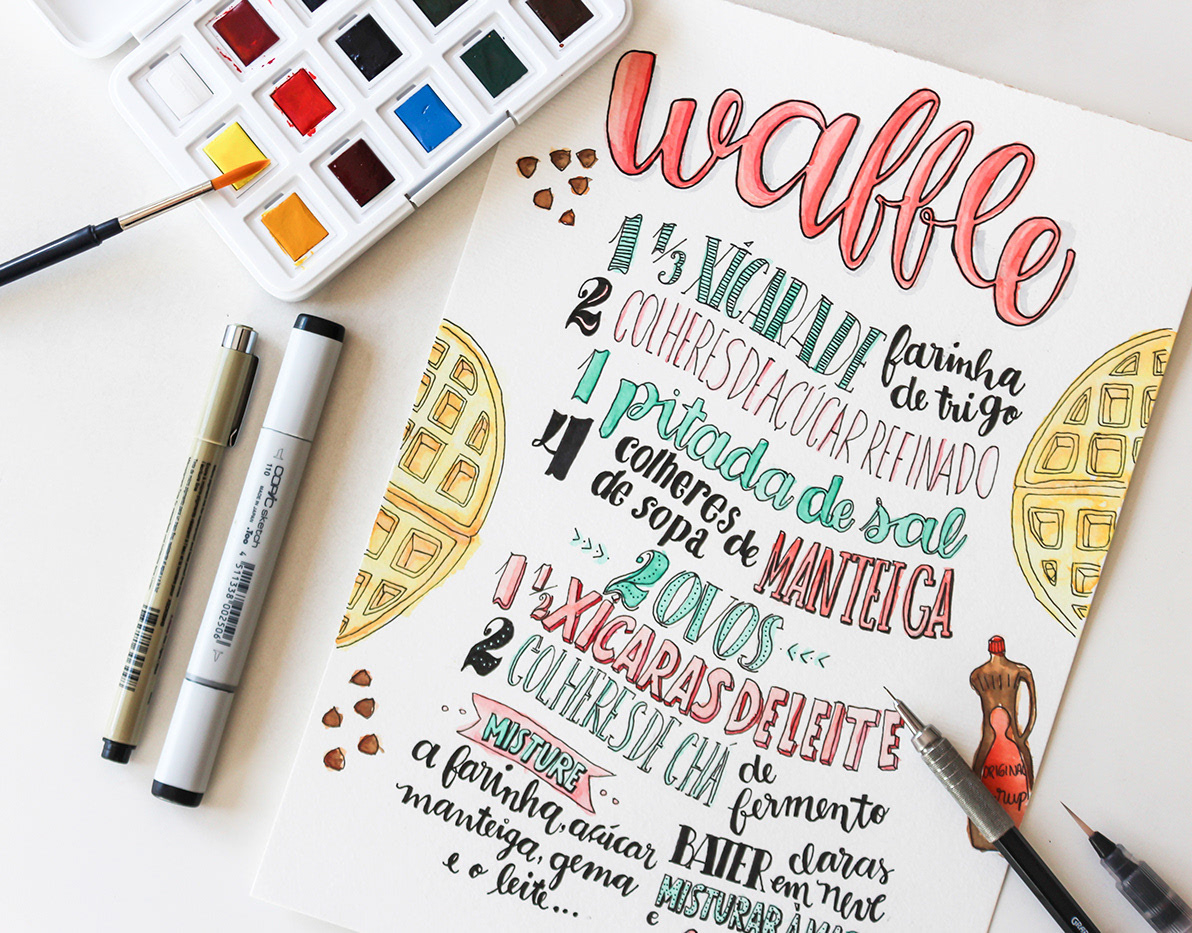 waffle
1 1/3 XÍCARA DE farinha
de trigo
2 COLHERES DE AÇÚCAR REFINADO
1 pitada de sal
4 colheres
de sopa de MANTEIGA
>>>> 2 OVOS <<<<
1 1/2 XÍCARAS DE LEITE
2 COLHERES DE CHÁ de
fermento
MISTURE
a farinha, açúcar
manteiga, gema
e o leite...
BATER claras
em neve
e MISTURAR À
ORIGINAL
COPIC sketch
110
MADE IN JAPAN .Too
4 511338 002506